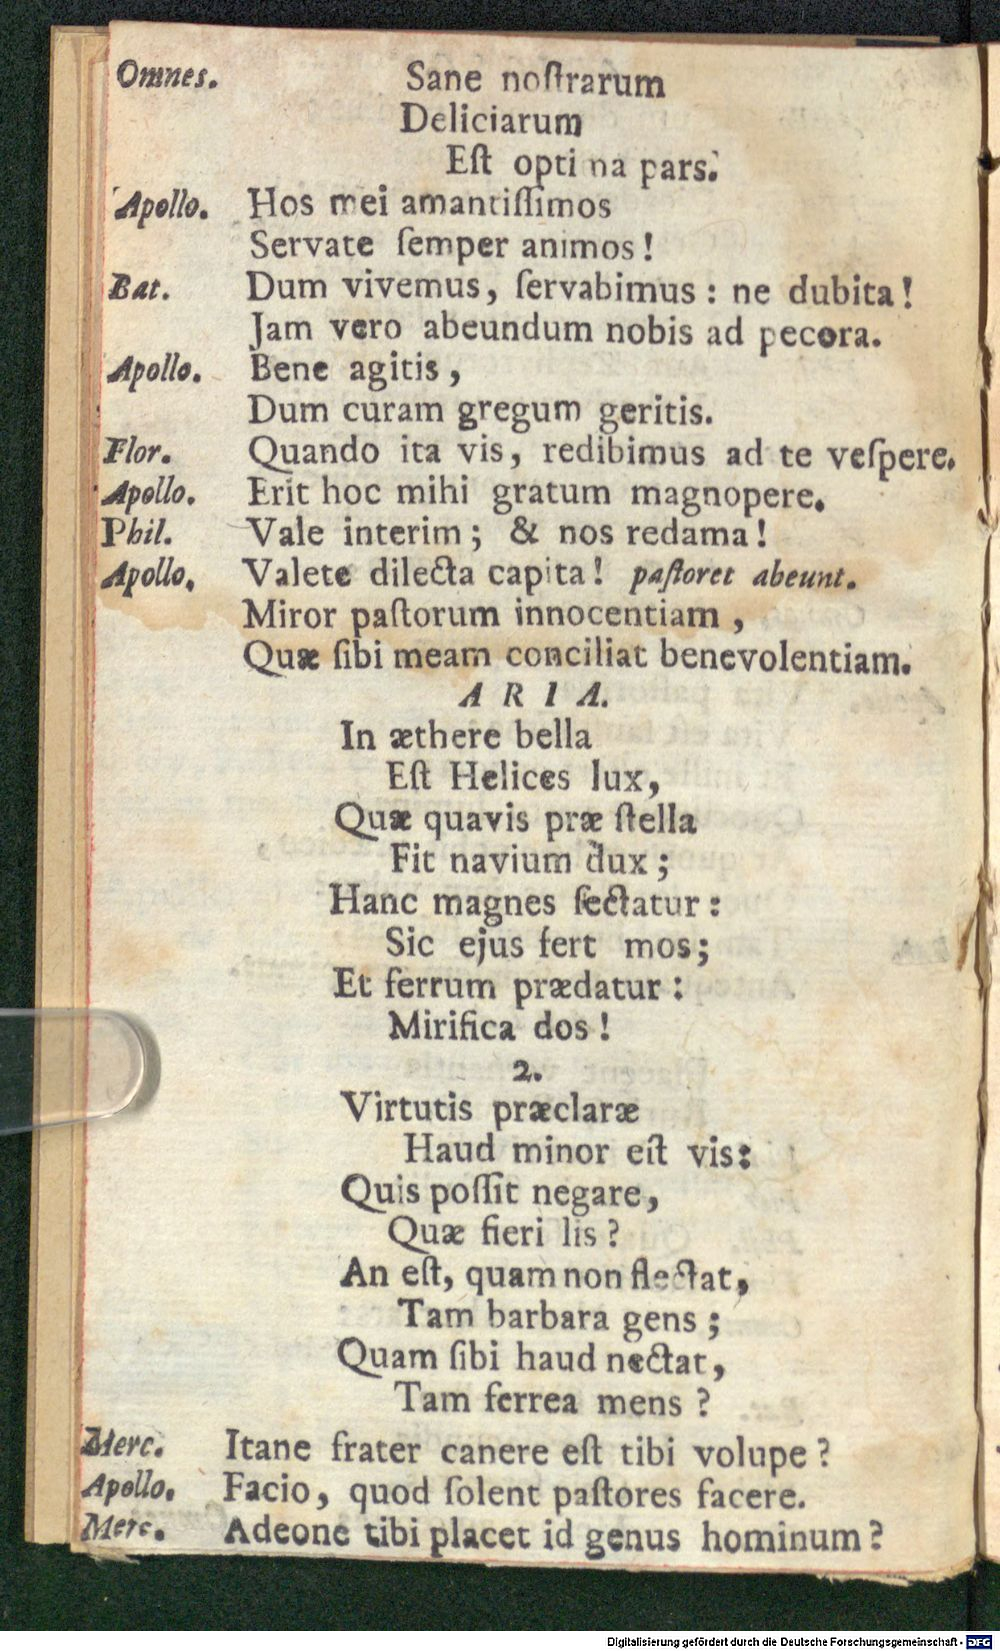 Omnes. Sane noſtrarum
Deliciarum
Eſt optima pars.
Apollo. Hos mei amantiſſimos
Servate ſemper animos!
Bat. Dum vivemus, ſervabimus: ne dubita!
Jam vero abeundum nobis ad pecora.
Apollo. Bene agitis,
Dum curam gregum geritis.
Flor. Quando ita vis, redibimus ad te veſpere.
Apollo. Erit hoc mihi gratum magnopere.
Phil. Vale interim; & nos redama!
Apollo. Valete dilecta capita! paſtoret abeunt.
Miror paſtorum innocentiam,
Quæ ſibi meam conciliat benevolentiam.
ARIA.
In æthere bella
Eſt Helices lux,
Quæ quavis præ ſtella
Fit navium dux;
Hanc magnes ſectatur:
Sic ejus fert mos;
Et ferrum prædatur:
Mirifica dos!
2.
Virtutis præclaræ
Haud minor eſt vis:
Quis poſſit negare,
Quæ fieri lis?
An eſt, quam non flectat,
Tam barbara gens;
Quam ſibi haud nectat,
Tam ferrea mens?
Merc. Itane frater canere eſt tibi volupe?
Apollo. Facio, quod ſolent paſtores facere.
Merc. Adeone tibi placet id genus hominum?
Digitalisierung gefördert durch die Deutsche Forschungsgemeinschaft - DFG